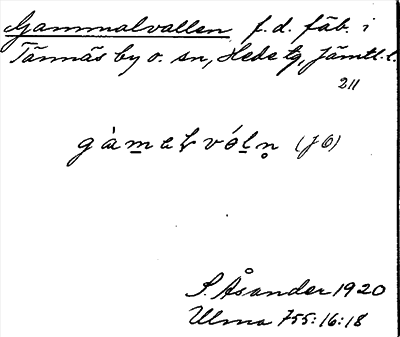 Gammalvallen f.d. fäb. i
Tännäs by o. sn, Hede tg, Jämtl. l.
211
gàmeɫvóḻn̥ (JÖ)
S. Åsander 1920
Ulma 755:16:18